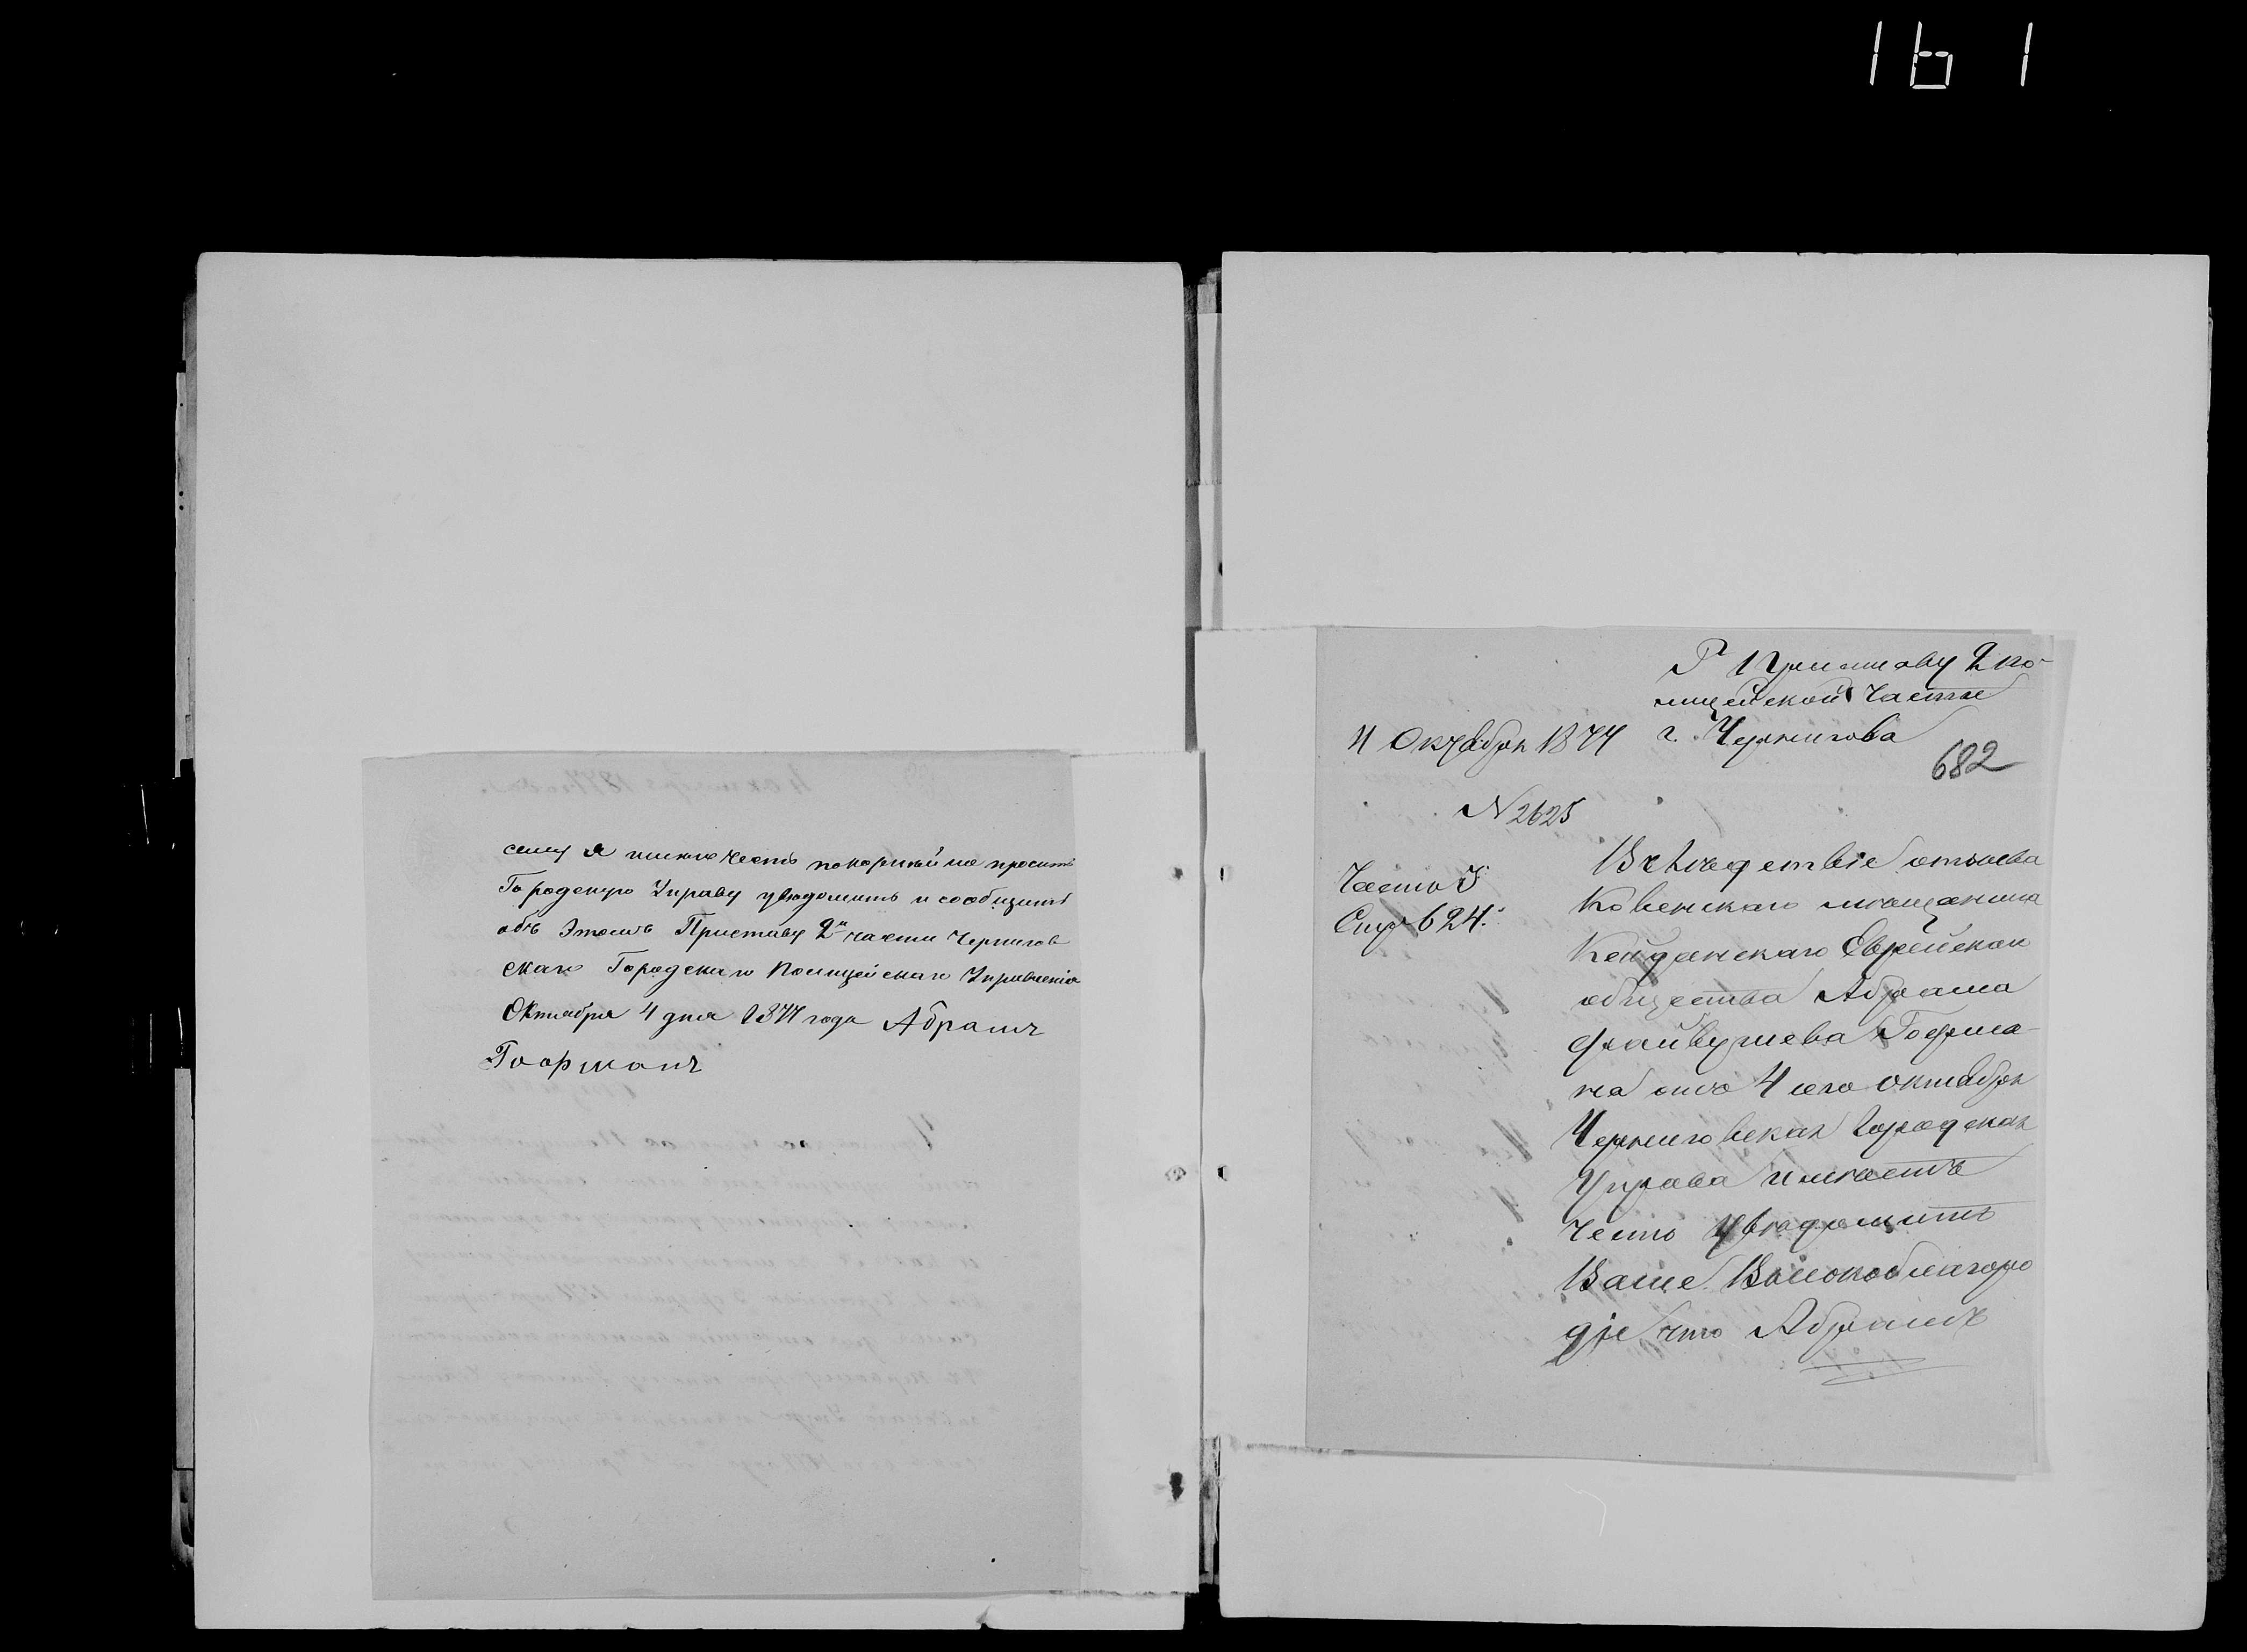 161
сему я имѣю честь покорнѣйше просить
Городскую Управу увѣдомить и сообщить
объ этомъ Приставу 2й части Чернигов
скаго Городскаго Полицейскаго Управленія
Октября 4 дня 1877 года Абрамъ
Гофманъ
Г Приставу 2 по-
лицейской части
4 Октября 1877 г. Чернигова
682
N 2625
Вслѣдствіе отзыва
Часто I
Ковенскаго мѣщанина
624.
Кейданскаго Еврейскаго
общества Абрама
Файвушева Гофма-
на отъ 4 сего октября
Черниговская Городская
Управа имѣетъ
честь увѣдомить
Ваше Высокоблагоро
діе что Абрамъ